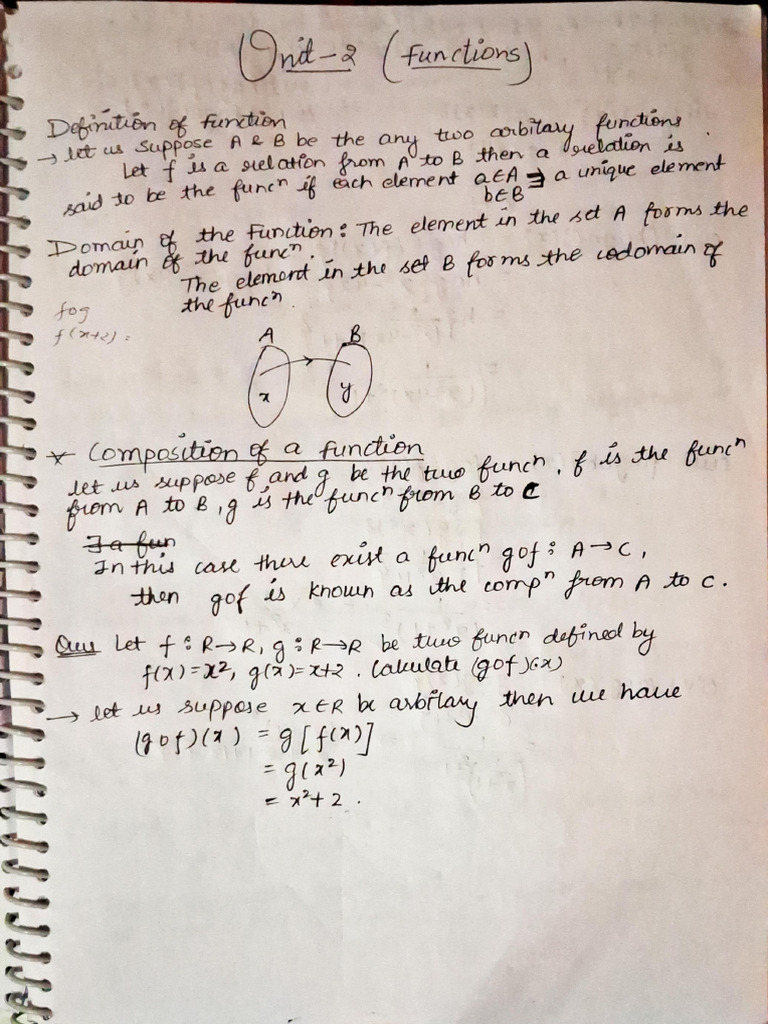 Unit-2 (Functions)
Definition of Function
→ let us suppose A & B be the any two arbitary functions.
Let f is a relation from A to B then a relation is
said to be the funcⁿ if each element a∈A ∃ a unique element
b∈B
Domain of the Function: The element in the set A forms the
domain of the funcⁿ.
The element in the set B forms the codomain of
the funcⁿ.
fog
f(x+2) =
A B
x y
* Composition of a function
let us suppose f and g be the two funcⁿ, f is the funcⁿ
from A to B, g is the funcⁿ from B to C
∃ a fun
In this case there exist a funcⁿ gof : A→C,
then gof is known as the compⁿ from A to C.
Ques Let f : R→R, g : R→R be two funcn defined by
f(x) = x², g(x) = x+2. Calculate (gof)(x)
→ let us suppose x∈R be arbitary then we have
(gof)(x) = g[f(x)]
= g(x²)
= x²+2.